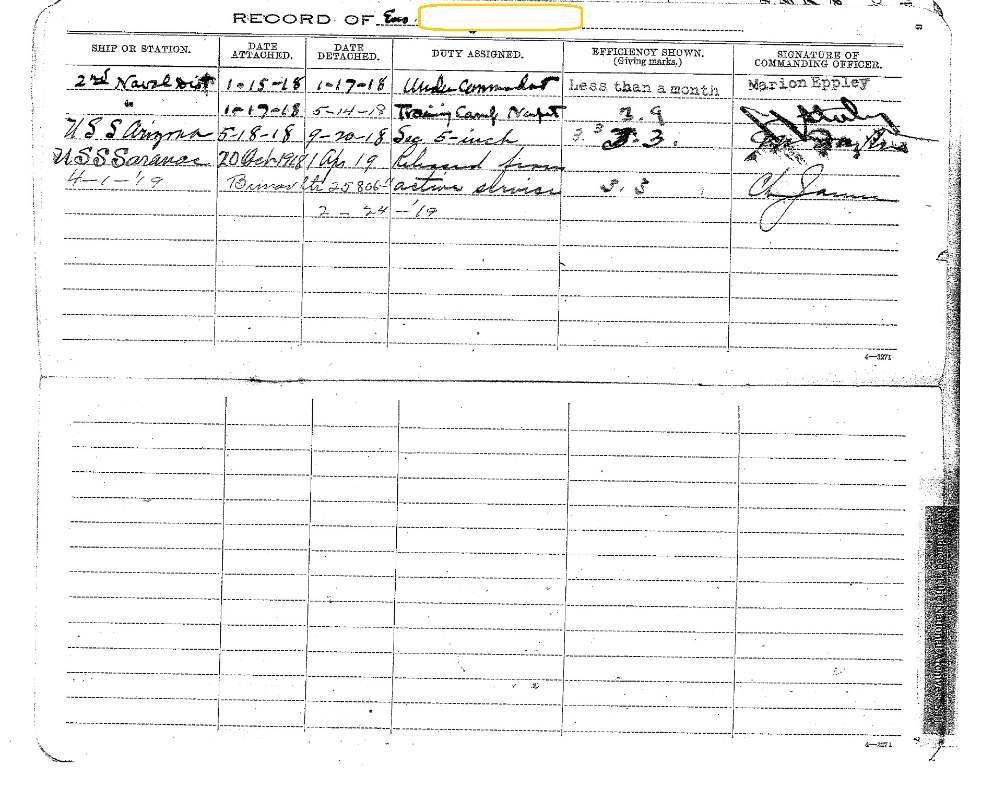 RECORD OF Ens.
SHIP OR STATION. DATE ATTACHED. DATE DETACHED. DUTY ASSIGNED. EFFICIENCY SHOWN. (Giving marks.) SIGNATURE OF COMMANDING OFFICER.
2nd Naval Dist 1-15-18 1-17-18 Under Commandant Less than a month Marion Eppley
" 1-17-18 5-14-18 Training Camp, Newport 3.9
U.S.S Arizona 5-18-18 9-20-18 Sec 5-inch 3.3 3.3.
USS Saranac 20 Oct 1918 1 Ap 19 Released from
4-1-'19 Bunav ltr 25806- active service 3.3
2-24-'19
4—3271
4—3271